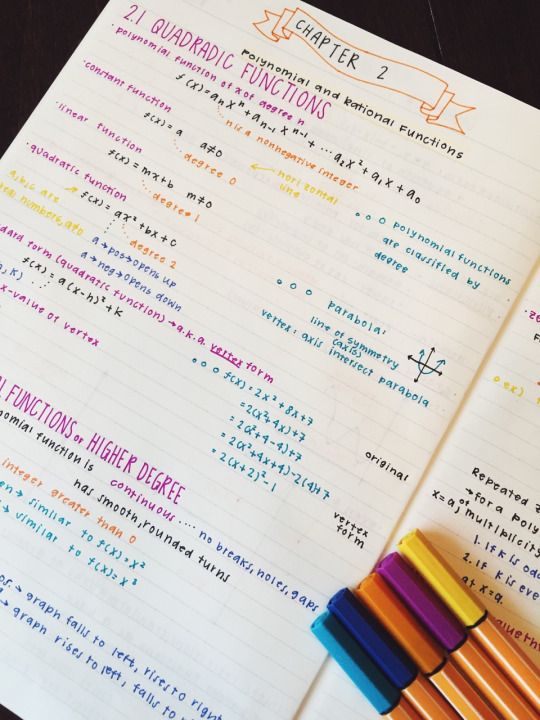 CHAPTER 2
Polynomial and Rational Functions
2.1 QUADRADIC FUNCTIONS
· polynomial function of x of degree n
f(x) = aₙxⁿ + aₙ₋₁xⁿ⁻¹ + ... a₂x² + a₁x + a₀
n is a nonnegative integer
· constant function
f(x) = a a≠0
degree 0
← horizontal
line
· linear function
f(x) = mx+b m≠0
degree 1
· quadratic function
a, b, c are
real numbers, a≠0 → f(x) = ax² + bx + c
degree 2
a → pos → opens up
a → neg → opens down
polynomial functions
are classified by
degree
dard form (quadratic function) → a.k.a. vertex form
f(x) = a(x-h)² + k
x-value of vertex
parabola:
line of symmetry
(axis)
vertex: axis intersect parabola
f(x) = 2x² + 8x + 7
= 2(x² + 4x) + 7
= 2(x² + 4 - 4) + 7
= 2(x² + 4x + 4) - 2(4) + 7
= 2(x + 2)² - 1
original
vertex
form
FUNCTIONS OF HIGHER DEGREE
nomial function is continuous .... no breaks, holes, gaps
has smooth, rounded turns
integer greater than 0
en → similar to f(x) = x²
→ similar to f(x) = x³
os. → graph falls to left, rises to right
→ graph rises to left, falls to
ex)
Repeated
→ for a poly
x = a, of
multiplicity
1. if k is odd
2. if k is eve
at x = a.